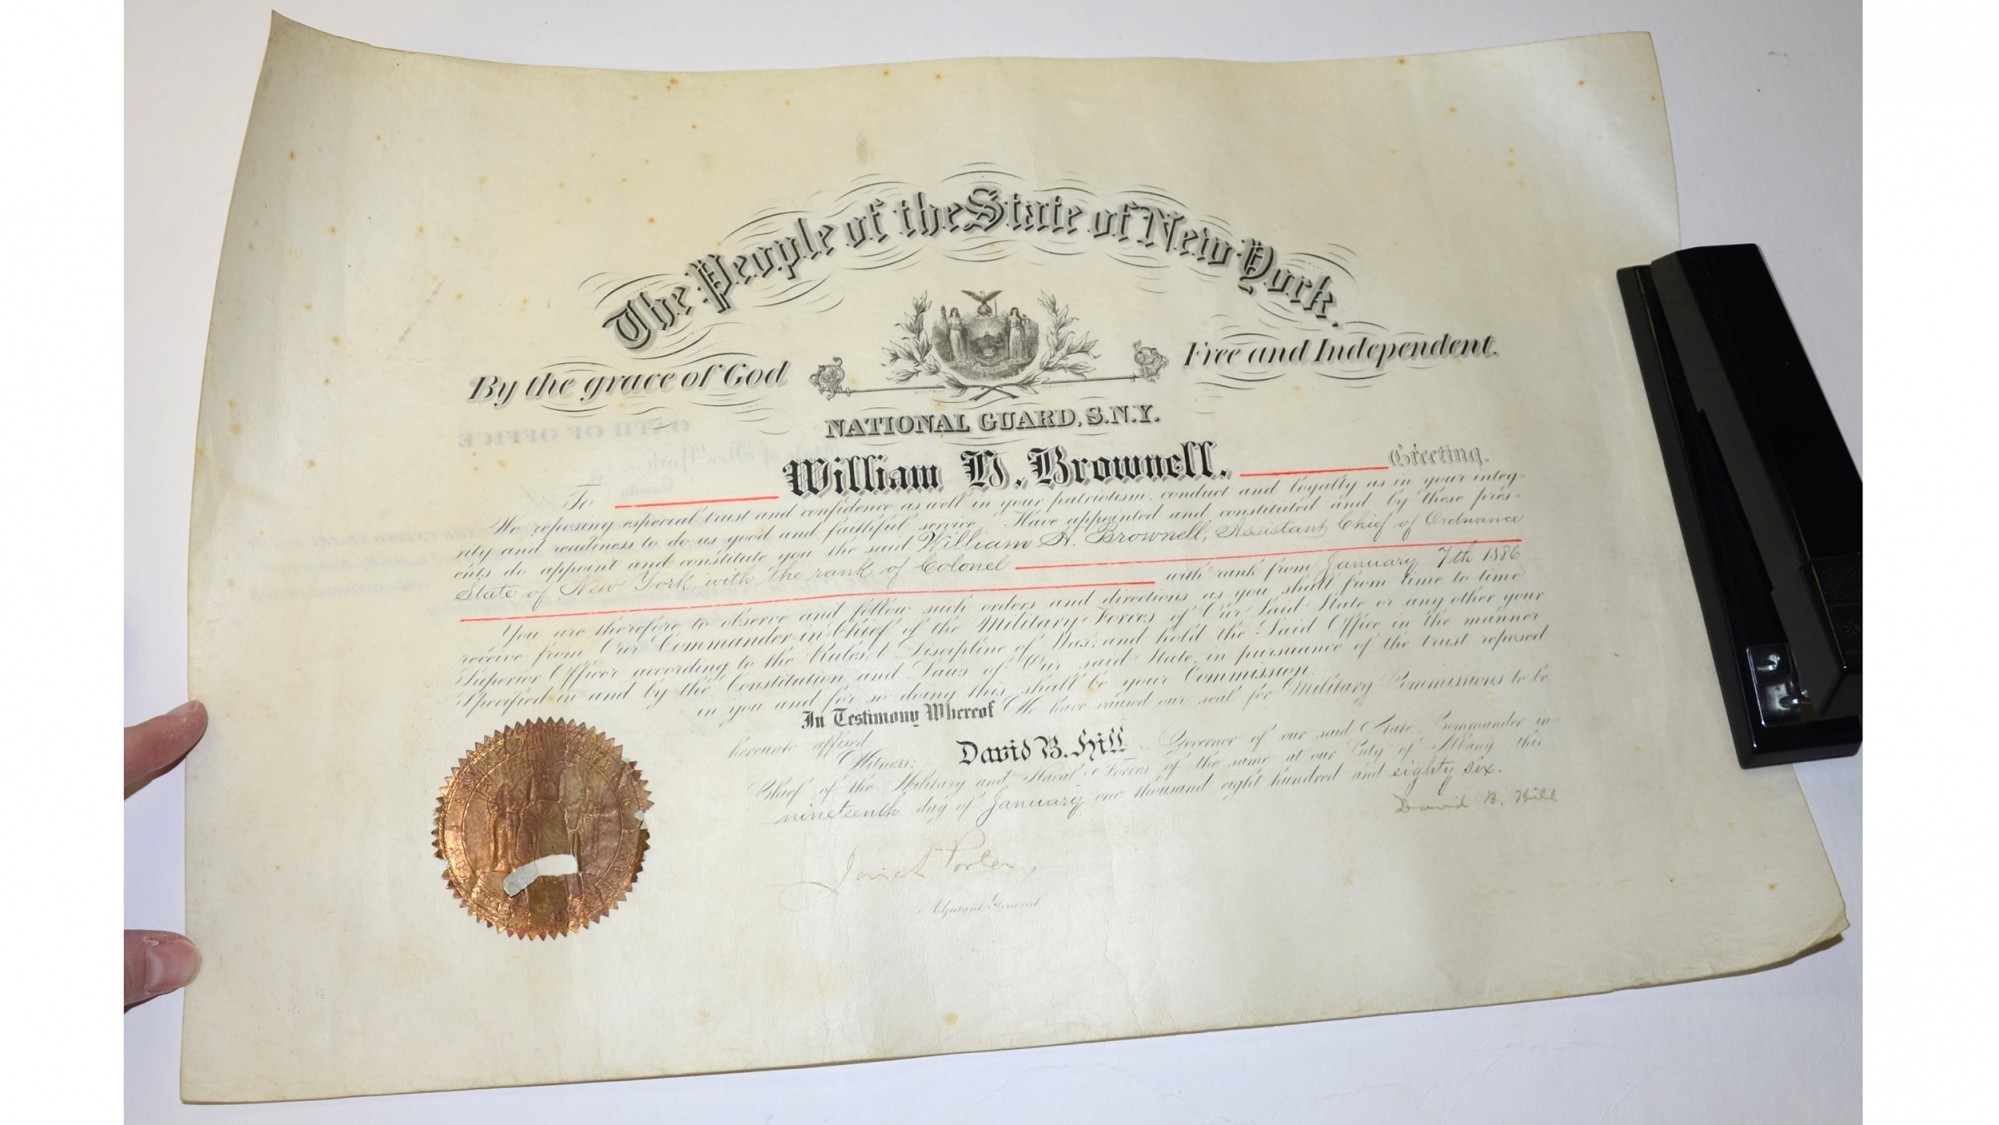 The People of the State of New York.
By the grace of God Free and Independent.
NATIONAL GUARD, S.N.Y.
To William H. Brownell. Greeting.
We reposing especial trust and confidence as well in your patriotism, conduct and loyalty as in your integ-
rity and readiness to do us good and faithful service, Have appointed and constituted and by these pres-
ents do appoint and constitute you the said William H. Brownell, Assistant Chief of Ordnance
State of New York with the rank of Colonel
with rank from January 7th 1886
You are therefore to observe and follow such orders and directions as you shall from time to time
receive from Our Commander in Chief of the Military Forces of Our Said State or any other your
Superior Officer according to the Rules & Discipline of War; and hold the Said Office in the manner
Specified in and by the Constitution and Laws of Our said State, in pursuance of the trust reposed
in you and for so doing this shall be your Commission.
In Testimony Whereof We have caused our seal for Military Commissions to be
hereunto affixed.
Witness; David B. Hill Governor of our said State, Commander in
Chief of the Military and Naval Forces of the same at our City of Albany this
nineteenth day of January one thousand eight hundred and eighty six.
David B. Hill
Porter
Adjutant General
OATH OF OFFICE
State of New York
County